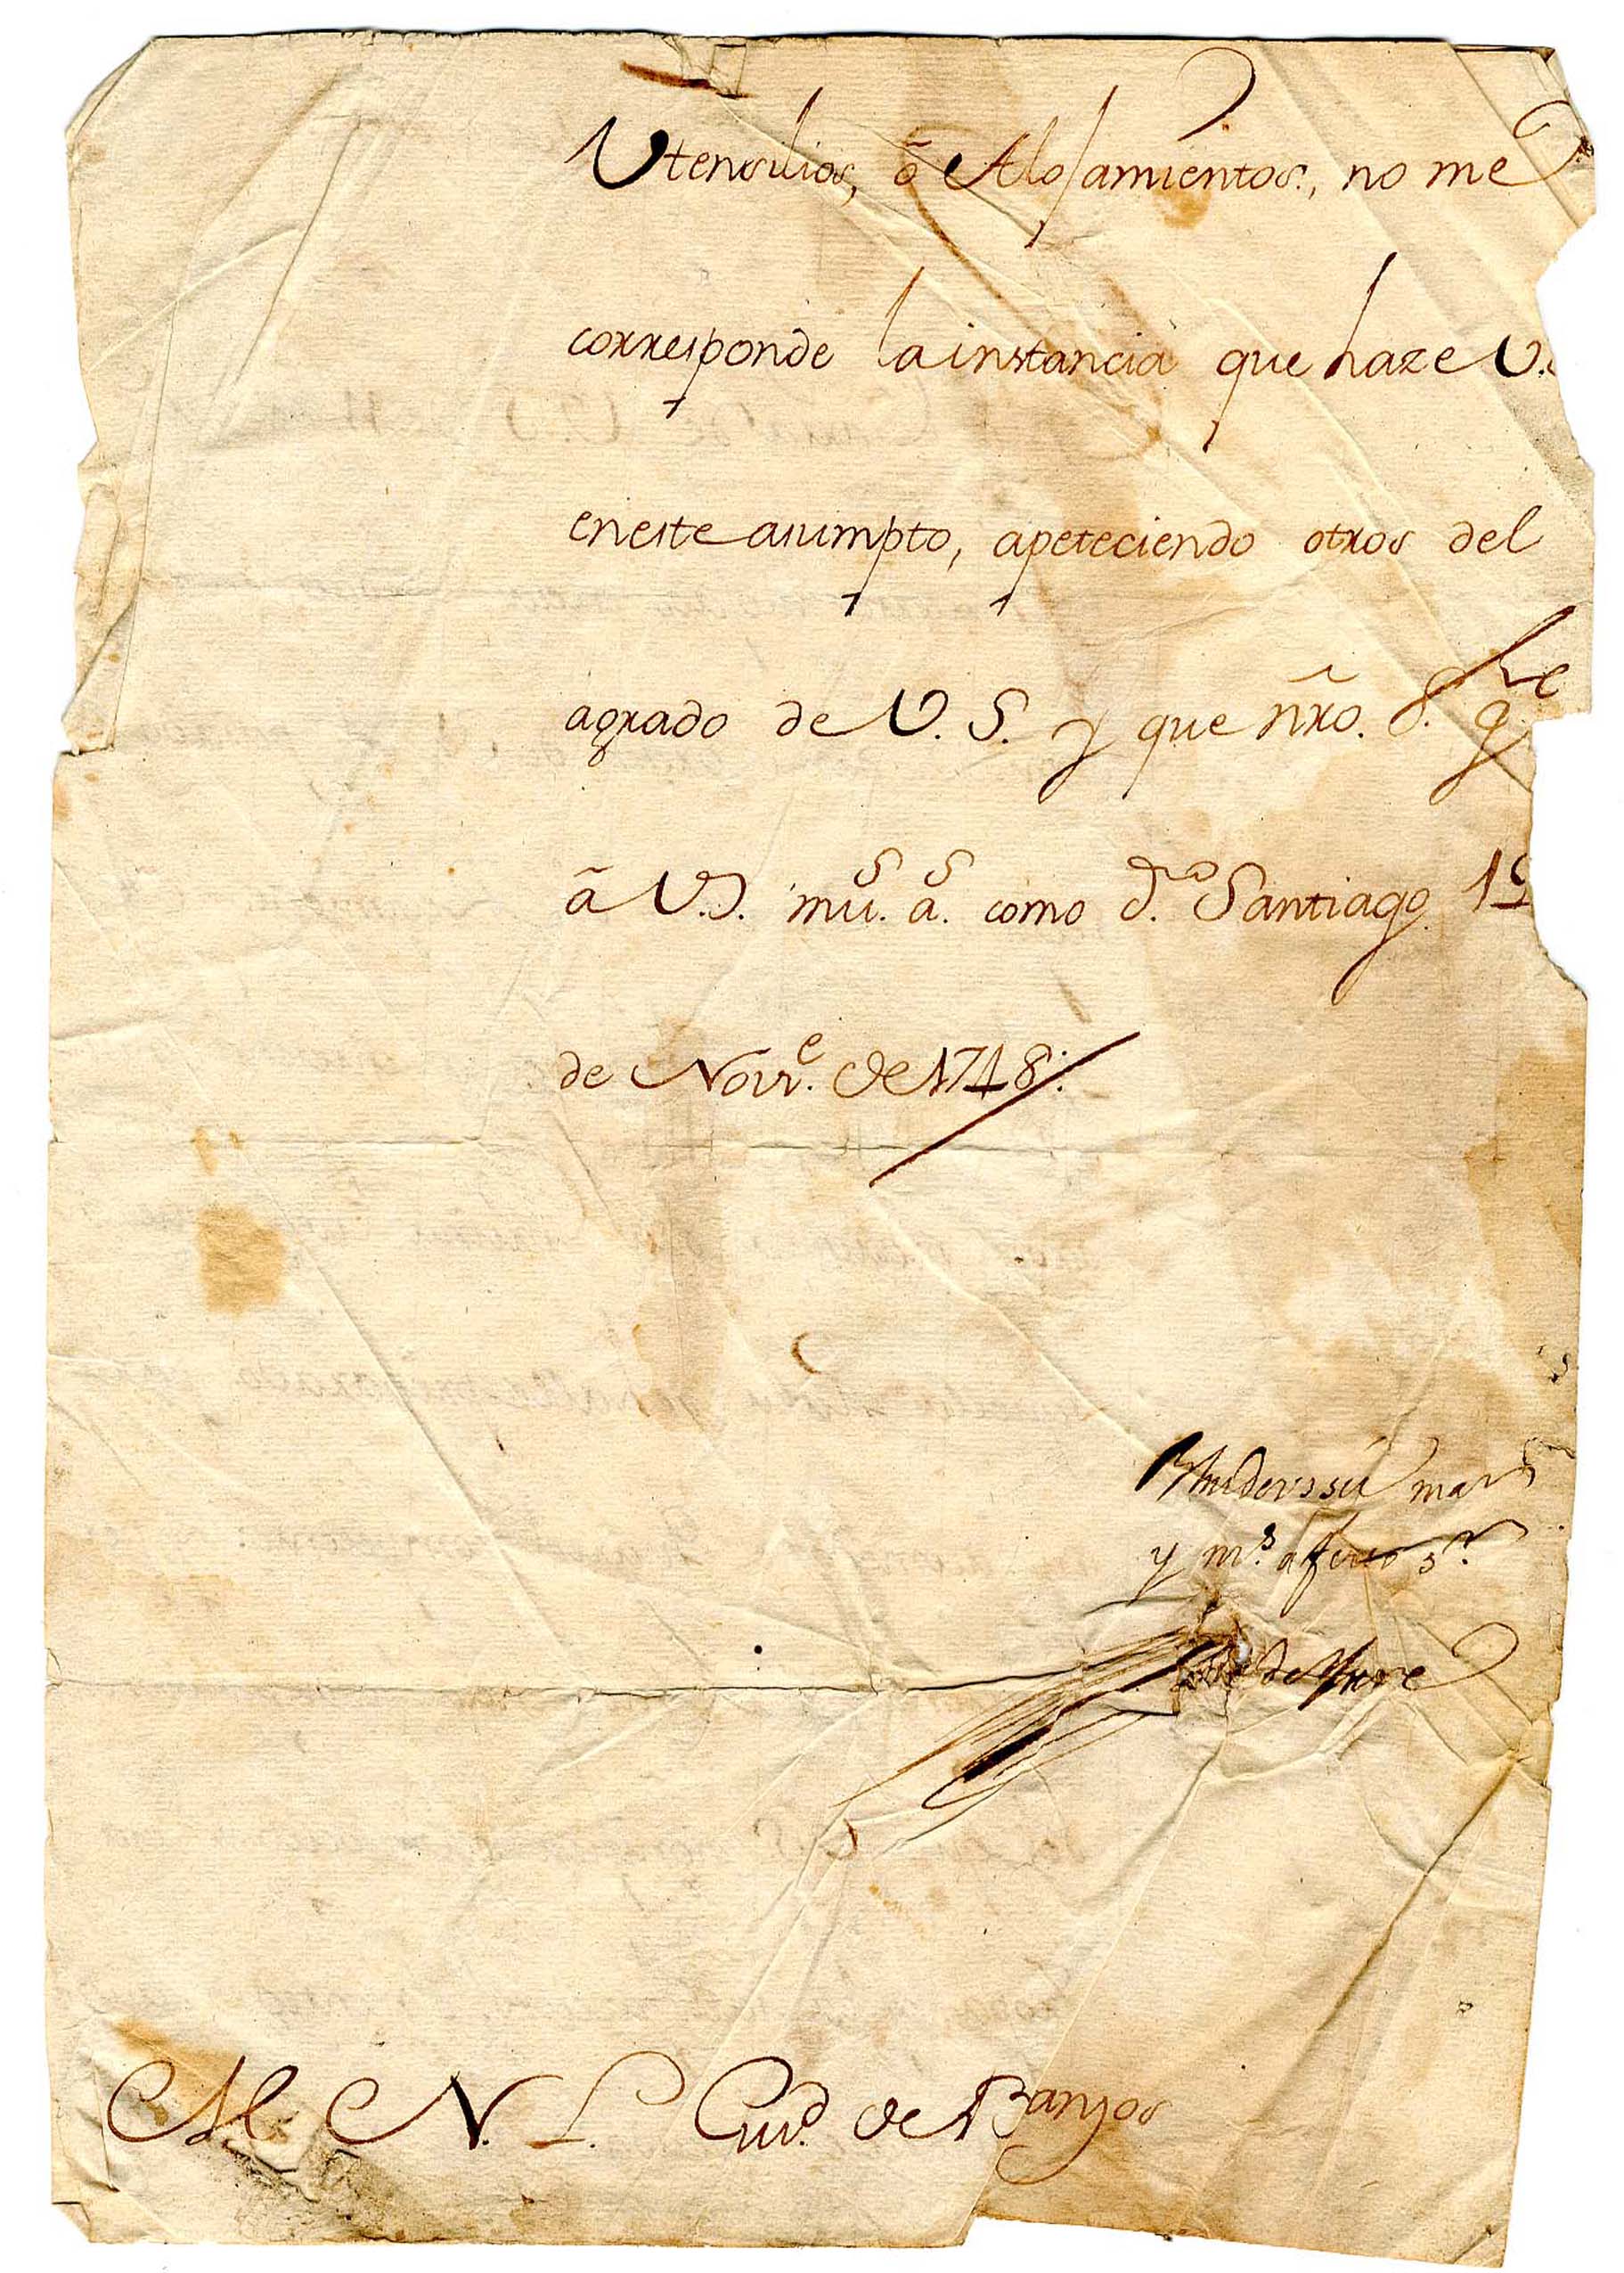 Utensilios, õ Alojamientos, no me
corresponde la instancia que haze V.
en este asumpto, apeteciendo otros del
agrado de V. S. y que nr̃o. S. gᵘᵉ
ã V.S. mu.ˢ a.ˢ como d.ᵒ Santiago 19
de Nov.ᵉ de 1748.
su
y m.ˢ afecto s.ʳ
M. N. L. Ciud. de